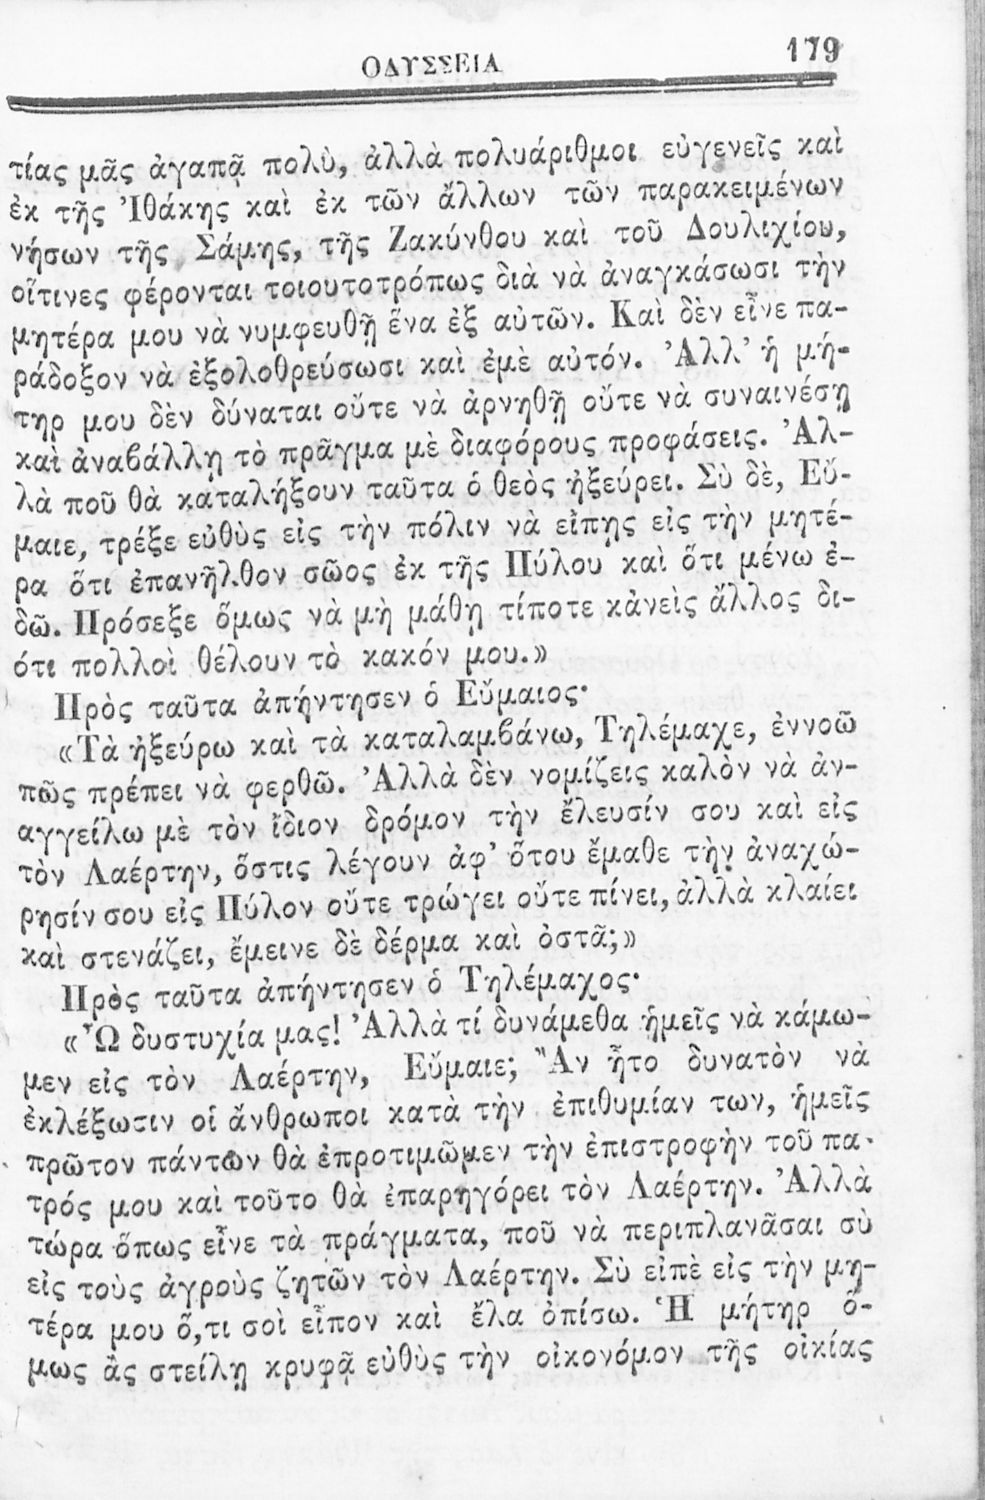 ΟΔΥΣΣΕΙΑ 179
τίας μᾶς ἀγαπᾷ πολὺ, ἀλλὰ πολυάριθμοι εὐγενεῖς καὶ
ἐκ τῆς Ἰθάκης καὶ ἐκ τῶν ἄλλων τῶν παρακειμένων
νήσων τῆς Σάμης, τῆς Ζακύνθου καὶ τοῦ Δουλιχίου,
οἵτινες φέρονται τοιουτοτρόπως διὰ νὰ ἀναγκάσωσι τὴν
μητέρα μου νὰ νυμφευθῇ ἕνα ἐξ αὐτῶν. Καὶ δὲν εἶνε πα-
ράδοξον νὰ ἐξολοθρεύσωσι καὶ ἐμὲ αὐτόν. Ἀλλ' ἡ μή-
τηρ μου δὲν δύναται οὔτε νὰ ἀρνηθῇ οὔτε νὰ συναινέσῃ
καὶ ἀναβάλλῃ τὸ πρᾶγμα μὲ διαφόρους προφάσεις. Ἀλ-
λὰ ποῦ θὰ καταλήξουν ταῦτα ὁ θεὸς ἠξεύρει. Σὺ δὲ, Εὔ-
μαιε, τρέξε εὐθὺς εἰς τὴν πόλιν νὰ εἴπῃς εἰς τὴν μητέ-
ρα ὅτι ἐπανῆλθον σῶος ἐκ τῆς Πύλου καὶ ὅτι μένω ἐ-
δῶ. Πρόσεξε ὅμως νὰ μὴ μάθῃ τίποτε κἀνεὶς ἄλλος δι-
ότι πολλοὶ θέλουν τὸ κακόν μου.»
Πρὸς ταῦτα ἀπήντησεν ὁ Εὔμαιος·
«Τὰ ἠξεύρω καὶ τὰ καταλαμβάνω, Τηλέμαχε, ἐννοῶ
πῶς πρέπει νὰ φερθῶ. Ἀλλὰ δὲν νομίζεις καλὸν νὰ ἀν-
αγγείλω μὲ τὸν ἴδιον δρόμον τὴν ἔλευσίν σου καὶ εἰς
τὸν Λαέρτην, ὅστις λέγουν ἀφ' ὅτου ἔμαθε τὴν ἀναχώ-
ρησίν σου εἰς Πύλον οὔτε τρώγει οὔτε πίνει, ἀλλὰ κλαίει
καὶ στενάζει, ἔμεινε δὲ δέρμα καὶ ὀστᾶ;»
Πρὸς ταῦτα ἀπήντησεν ὁ Τηλέμαχος·
«Ὦ δυστυχία μας! Ἀλλὰ τί δυνάμεθα ἡμεῖς νὰ κάμω-
μεν εἰς τὸν Λαέρτην, Εὔμαιε; Ἂν ἦτο δυνατὸν νὰ
ἐκλέξωσιν οἱ ἄνθρωποι κατὰ τὴν ἐπιθυμίαν των, ἡμεῖς
πρῶτον πάντων θὰ ἐπροτιμῶμεν τὴν ἐπιστροφὴν τοῦ πα-
τρός μου καὶ τοῦτο θὰ ἐπαρηγόρει τὸν Λαέρτην. Ἀλλὰ
τώρα ὅπως εἶνε τὰ πράγματα, ποῦ νὰ περιπλανᾶσαι σὺ
εἰς τοὺς ἀγροὺς ζητῶν τὸν Λαέρτην. Σὺ εἰπὲ εἰς τὴν μη-
τέρα μου ὅ,τι σοὶ εἶπον καὶ ἔλα ὀπίσω. Ἡ μήτηρ ὅ-
μως ἂς στείλῃ κρυφᾷ εὐθὺς τὴν οἰκονόμον τῆς οἰκίας